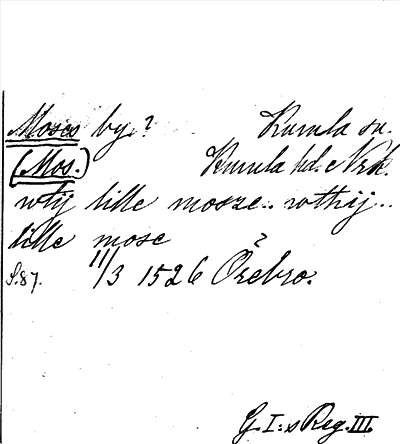 Moses by? Kumla sn.
(Mos.) Kumla hd. Nrk.
wtij lille mosze.. wthij..
lille mose
S.87. 11/3 1526 Örebro.
G. I:s Reg. III.